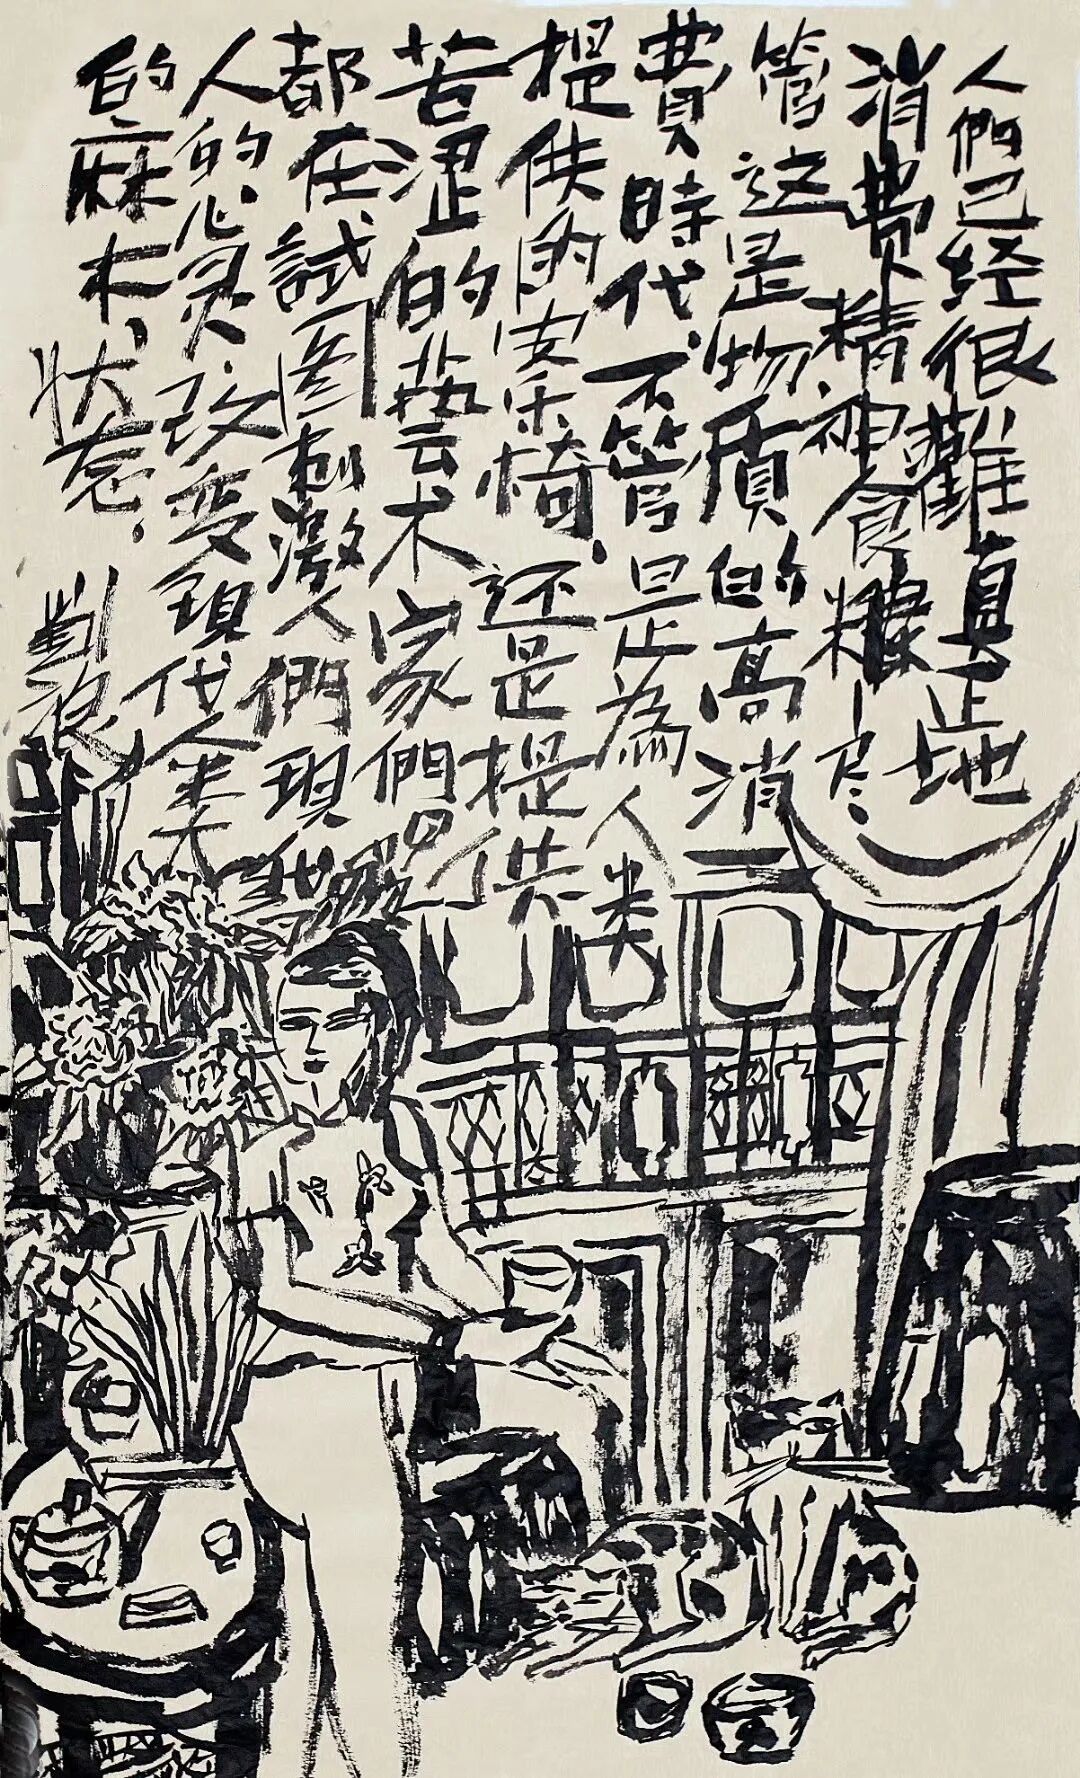 人們已经很難真正地
消费精神食糧、尽
管这是物质的高消
費時代、不管是為人类
提供的安乐椅、还是提供
苦涩的藝术家們
都在試图刺激人們現代
人的心灵、改变現代人类
的麻木、状态.
劉浪